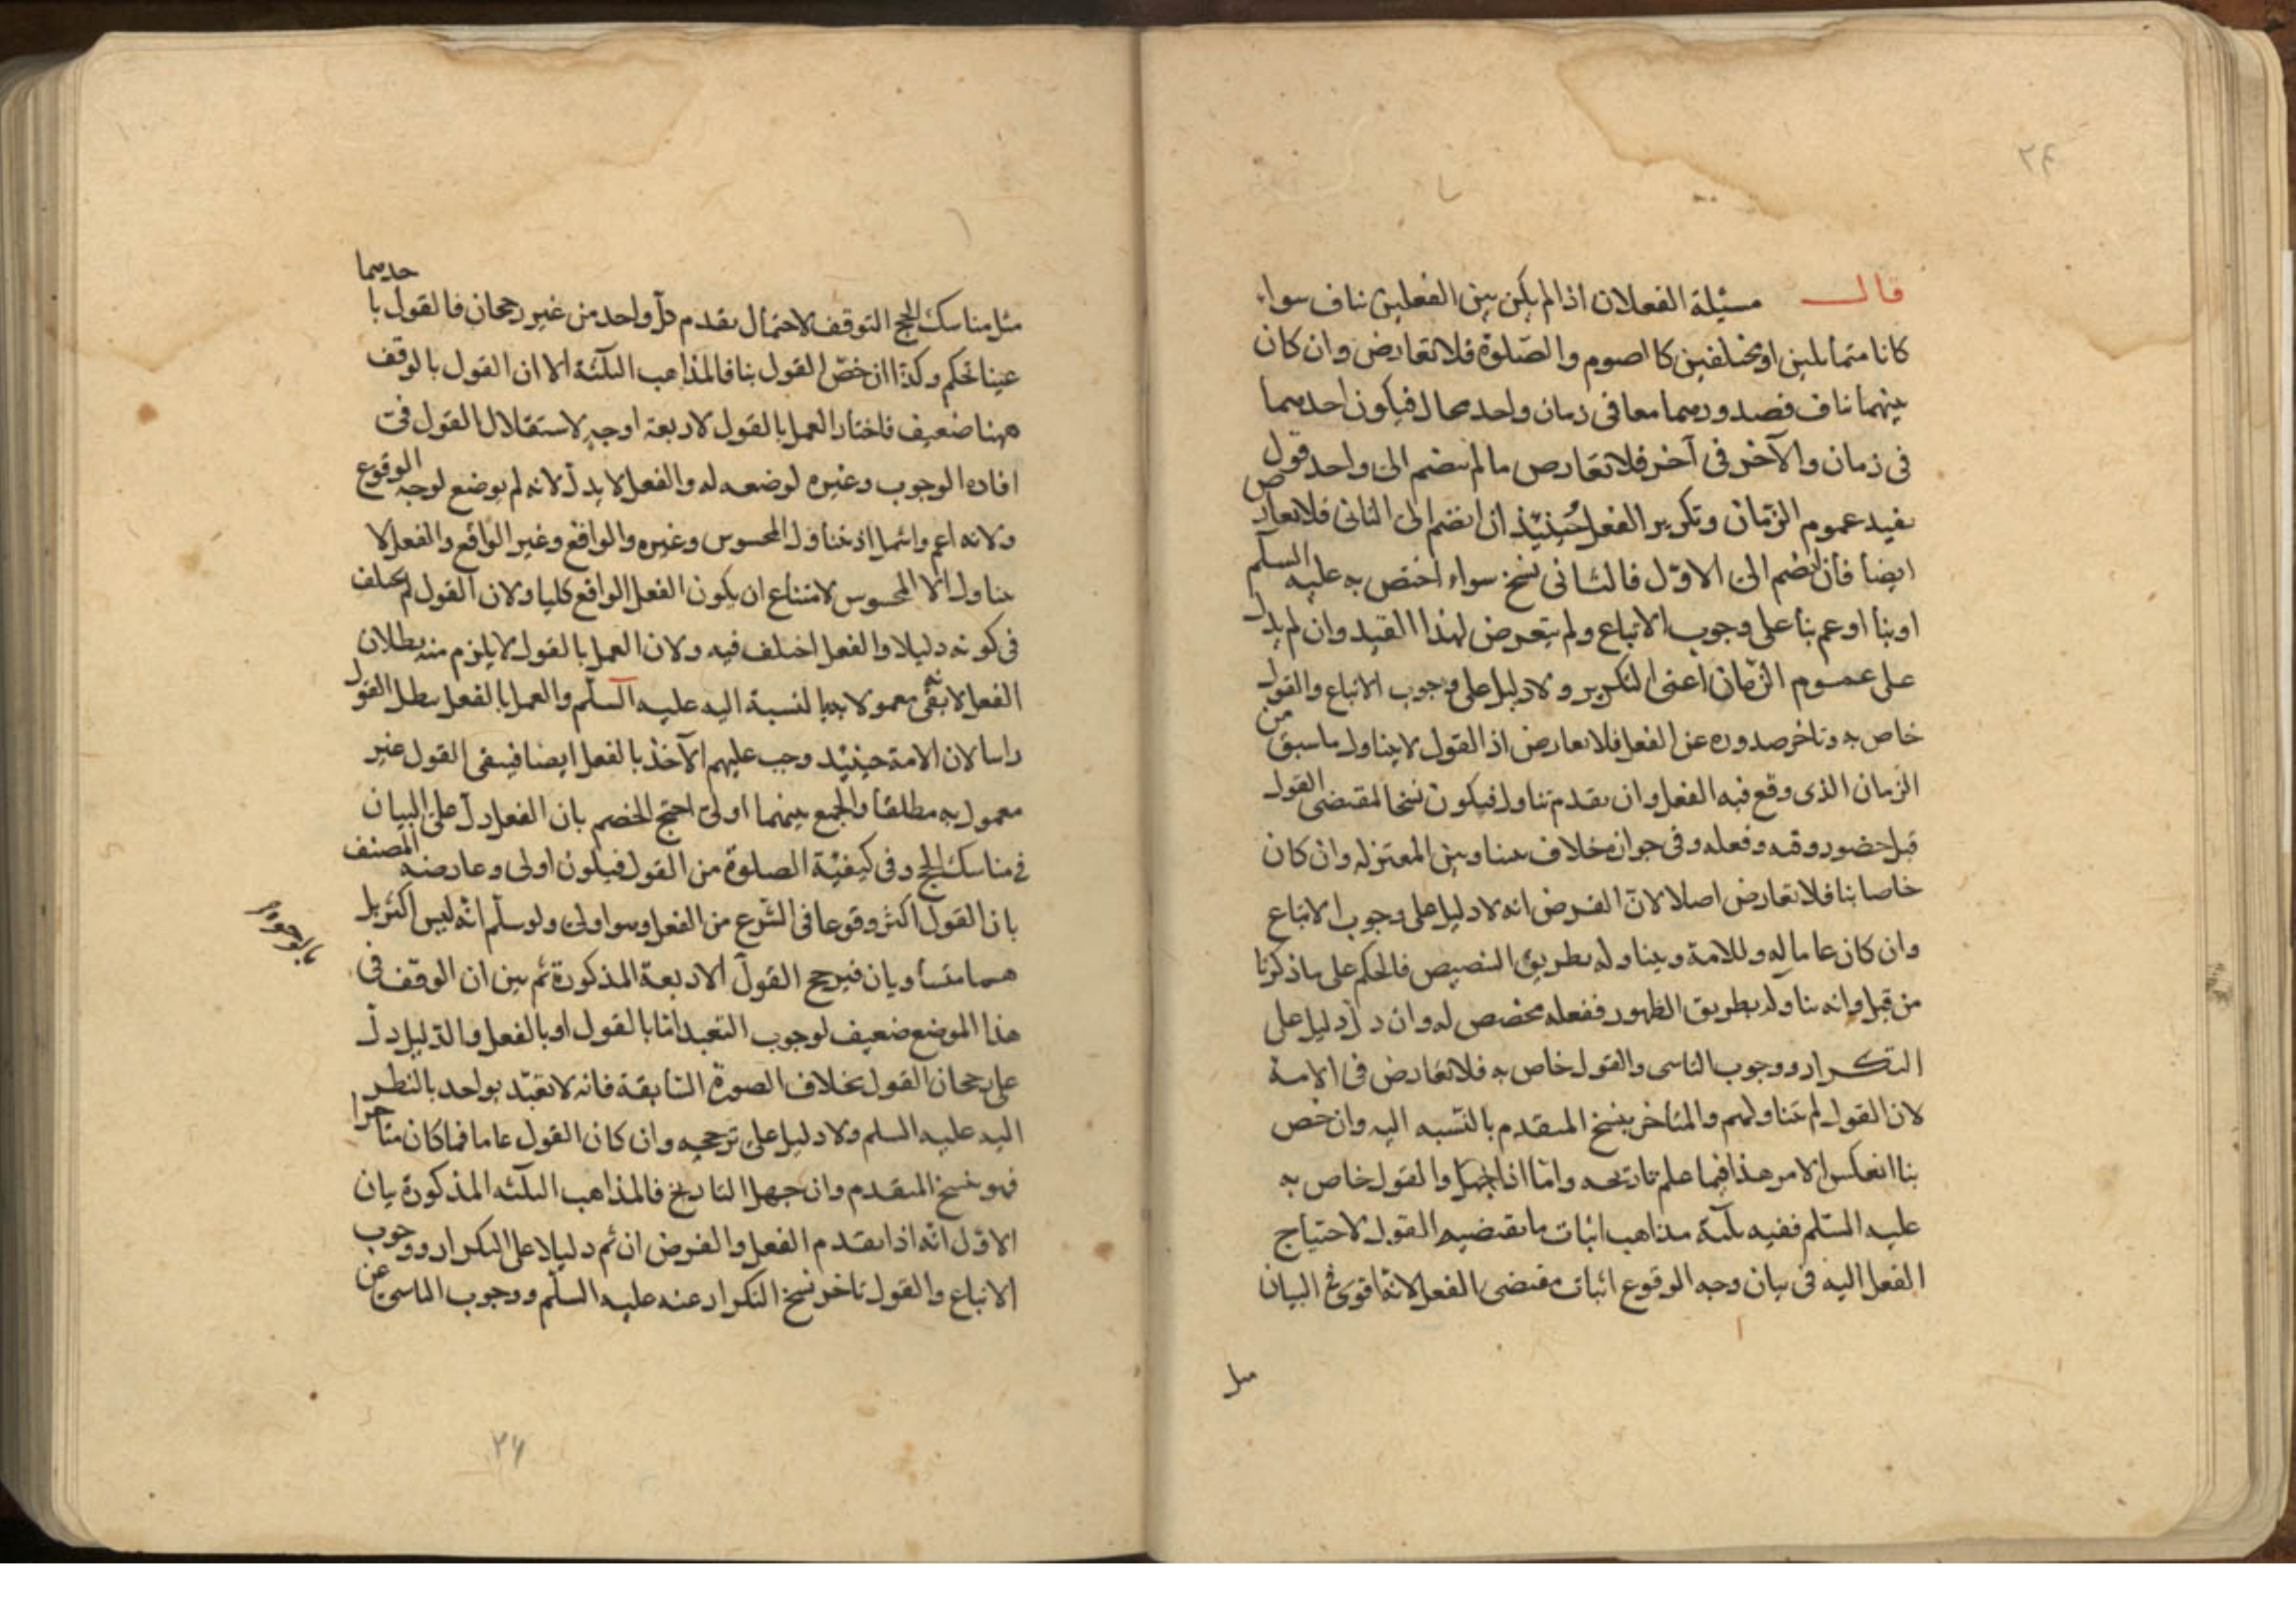 ٢٤
قال مسئلة الفعلان اذا لم يكن بين الفعلين تناف سواء
كانا متماثلين او مختلفين كالصوم والصلوة فلا تعارض وان كان
بينهما تناف فصدورهما معا فى زمان واحد محال فيكون احدهما
فى زمان والآخر فى آخر فلا تعارض ما لم ينضم الى واحد قول
يفيد عموم الزمان وتكرير الفعل حينئذ ان انضم الى الثانى فلا تعارض
ايضا فان انضم الى الاول فالثانى نسخ سواء اختص به عليه السلم
او بنا او عم بنا على وجوب الاتباع ولم يتعرض لهذا القيد وان لم يدل
على عموم الزمان اعنى التكرير ولا دليل على وجوب الاتباع والقول
خاص به وتاخر صدوره عن الفعل فلا تعارض اذ القول لا يتناول ما سبق من
الزمان الذى وقع فيه الفعل وان تقدم تناول فيكون نسخا لمقتضى القول
قبل حضور وقته وفعله وفى جوازه خلاف بيننا وبين المعتزله وان كان
خاصا بنا فلا تعارض اصلا لان الفرض انه لا دليل على وجوب الاتباع
وان كان عاما له وللامة ويتناوله بطريق التنصيص فالحكم على ما ذكرنا
من قبل وانه تناوله بطريق الظهور ففعله مخصص له وان دل دليل على
التكرار ووجوب التاسى والقول خاص به فلا تعارض فى الامة
لان القول لم يتناولهم والمتاخر ينسخ المتقدم بالنسبه اليه وان خص
بنا انعكس الامر هذا فيما علم تاريخه واما اذا جهل والقول خاص به
عليه السلم ففيه ثلثة مذاهب اثبات ما يقتضيه القول لاحتياج
الفعل اليه فى بيان وجه الوقوع اثبات مقتضى الفعل لانه اقوى فى البيان
مثل
مثل مناسك الحج التوقف لاحتمال تقدم كل واحد من غير رجحان فالقول باحدهما
عينا تحكم وكذا ان خص القول بنا فالمذاهب الثلثة الا ان القول بالوقف
ههنا ضعيف فاختار العمل بالقول لاربعة اوجه لاستقلال القول فى
افادة الوجوب وغيره لوضعه له والفعل لا يدل لانه لم يوضع لوجه الوقوع
ولانه اعم واشمل اذ يتناول المحسوس وغيره والواقع وغير الواقع والفعل لا
يتناول الا المحسوس لامتناع ان يكون الفعل الواقع كليا ولان القول لم يختلف
فى كونه دليلا والفعل اختلف فيه ولان العمل بالقول لا يلزم منه بطلان
الفعل لانه بقى معمولا به بالنسبة اليه عليه السلم والعمل بالفعل يبطل القول
راسا لان الامة حينئذ وجب عليهم الآخذ بالفعل ايضا فيبقى القول غير
معمول به مطلقا والجمع بينهما اولى احتج الخصم بان الفعل ادل على البيان
فى مناسك الحج وفى كيفية الصلوة من القول فيكون اولى وعارضه المصنف
بان القول اكثر وقوعا فى الشرع من الفعل وهو اولى ولو سلم انه ليس اكثر بل
هما متساويان فيرجح القول الاربعة المذكورة ثم بين ان الوقف فى
هذا الموضع ضعيف لوجوب التعبد اما بالقول او بالفعل والدليل دل
على رجحان القول بخلاف الصورة السابقة فانه لا تعبد بواحد بالنظر
اليه عليه السلم ولا دليل على ترجيحه وان كان القول عاما فما كان متاخرا
فهو نسخ المتقدم وان جهل التاريخ فالمذاهب الثلثه المذكورة بيان
الاول انه اذا تقدم الفعل والفرض ان ثم دليلا على التكرار ووجوب
الاتباع والقول تاخر نسخ التكرار عنه عليه السلم ووجوب التاسى عن
٢٦